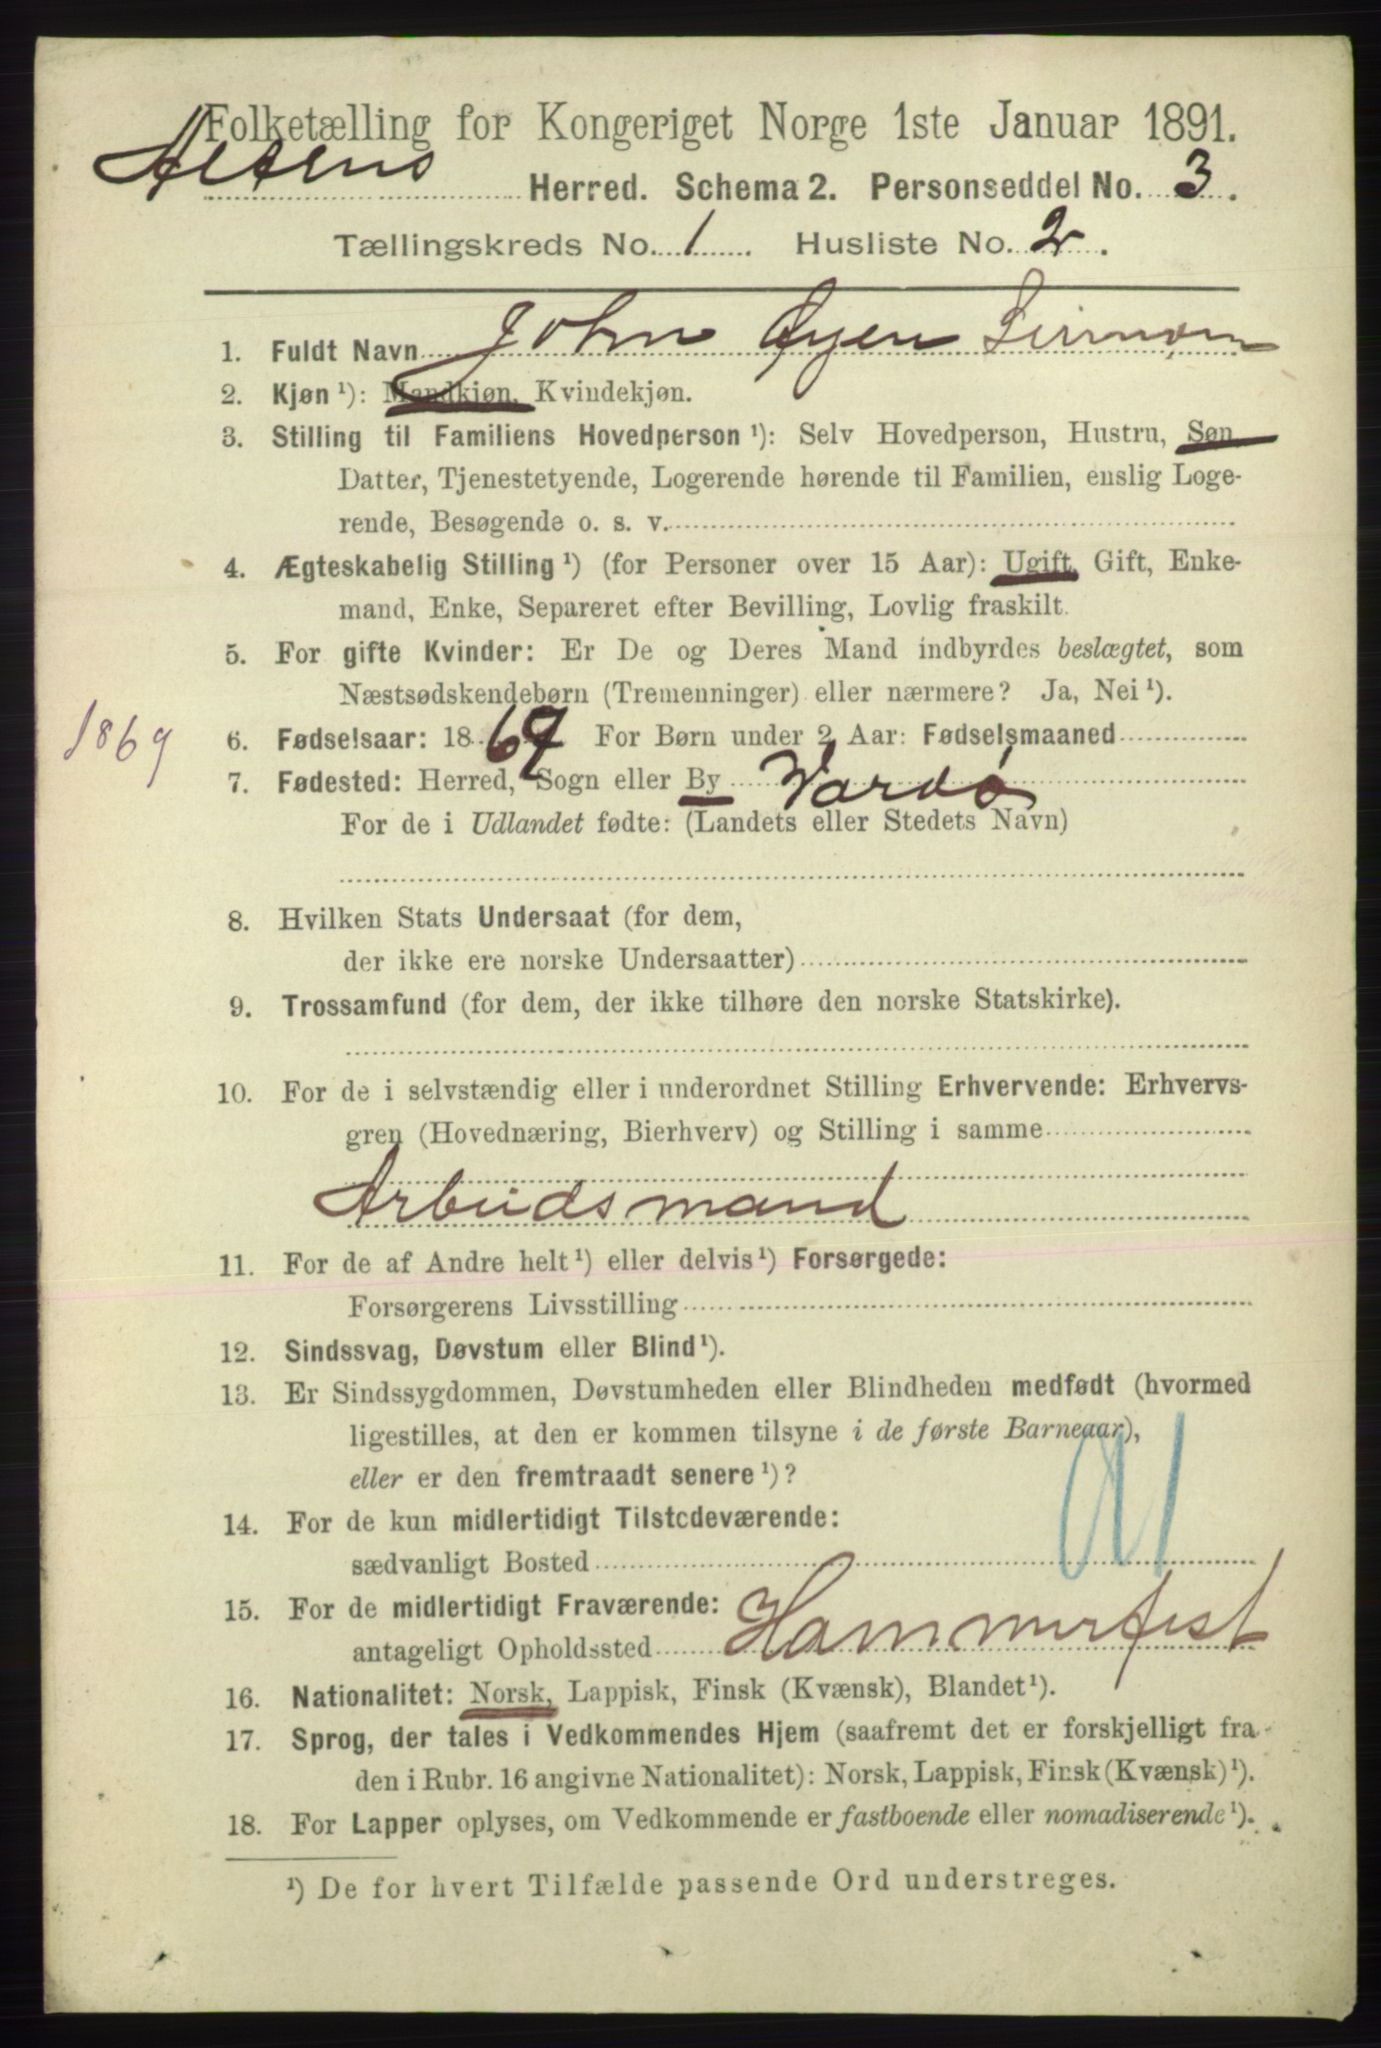 Folketælling for Kongeriget Norge 1ste Januar 1891.
Altens Herred. Schema 2. Personseddel No. 3.
Tællingskreds No. 1. Husliste No. 2.
1. Fuldt Navn John Øyen
2. Kjøn ¹): Mandkjøn, Kvindekjøn.
3. Stilling til Familiens Hovedperson ¹): Selv Hovedperson, Hustru, Søn,
Datter, Tjenestetyende, Logerende hørende til Familien, enslig Loge-
rende, Besøgende o. s. v.
4. Ægteskabelig Stilling ¹) (for Personer over 15 Aar): Ugift, Gift, Enke-
mand, Enke, Separeret efter Bevilling, Lovlig fraskilt.
5. For gifte Kvinder: Er De og Deres Mand indbyrdes beslægtet, som
Næstsødskendebørn (Tremenninger) eller nærmere? Ja, Nei ¹).
1869
6. Fødselsaar: 1869 For Børn under 2 Aar: Fødselsmaaned
7. Fødested: Herred, Sogn eller By Vardø
For de i Udlandet fødte: (Landets eller Stedets Navn)
8. Hvilken Stats Undersaat (for dem,
der ikke ere norske Undersaatter)
9. Trossamfund (for dem, der ikke tilhøre den norske Statskirke).
10. For de i selvstændig eller i underordnet Stilling Erhvervende: Erhvervs-
gren (Hovednæring, Bierhverv) og Stilling i samme
Arbeidsmand
11. For de af Andre helt ¹) eller delvis ¹) Forsørgede:
Forsørgerens Livsstilling
12. Sindssvag, Døvstum eller Blind ¹).
13. Er Sindssygdommen, Døvstumheden eller Blindheden medfødt (hvormed
ligestilles, at den er kommen tilsyne i de første Barneaar),
eller er den fremtraadt senere ¹)?
14. For de kun midlertidigt Tilstedeværende:
sædvanligt Bosted
15. For de midlertidigt Fraværende:
antageligt Opholdssted Hammerfest
16. Nationalitet: Norsk, Lappisk, Finsk (Kvænsk), Blandet ¹).
17. Sprog, der tales i Vedkommendes Hjem (saafremt det er forskjelligt fra
den i Rubr. 16 angivne Nationalitet): Norsk, Lappisk, Finsk (Kvænsk) ¹).
18. For Lapper oplyses, om Vedkommende er fastboende eller nomadiserende ¹).
¹) De for hvert Tilfælde passende Ord understreges.